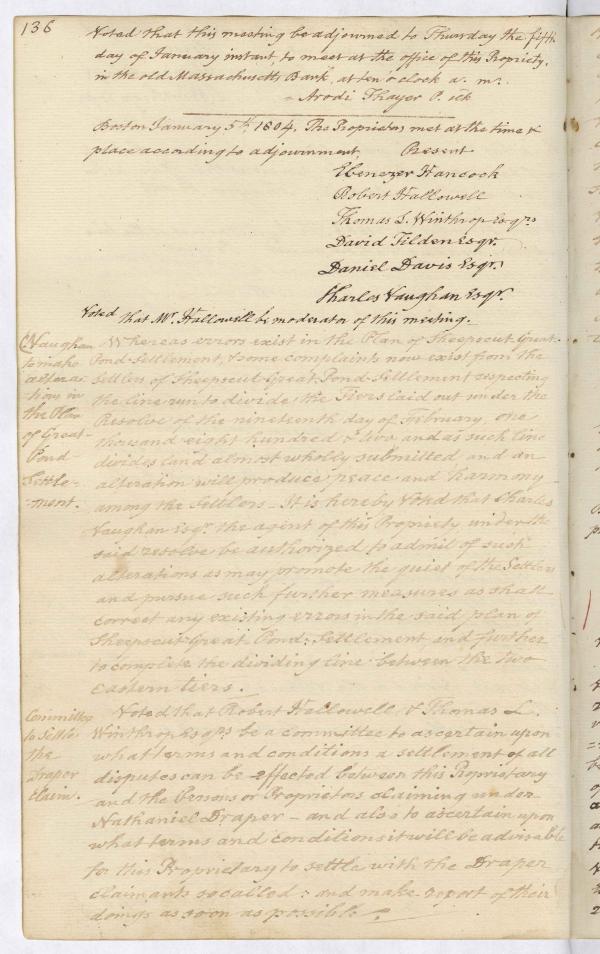 136
Voted that this meeting be adjourned to Thursday the fifth
day of January instant, to meet at the office of this Propriety,
in the old Massachusetts Bank, at ten o'clock a. m.
Arodi Thayer P.
Boston January 5th, 1804, The Proprietors met at the time &
place according to adjournment, Present
Ebenezer Hancock
Robert Hallowell
Thomas L. Winthrop Esqrs
David Tilden Esqr.
Daniel Davis Esqr.
Charles Vaughan Esqr.
Voted that Mr. Hallowell be moderator of this meeting.
C. Vaughan
to make
altera-
tion in
the Plan
of Great-
Pond
Settle-
-ment.
Whereas errors exist in the Plan of Sheepscut-Great-
Pond-Settlement, & some complaints now exist from the
Settlers of Sheepscut-Great-Pond-Settlement respecting
the line run to divide the Tiers laid out under the
Resolve of the nineteenth day of February, one
thousand eight hundred & two, and as such line
divides land almost wholly submitted and an
alteration will produce peace and harmony
among the Settlers - It is hereby Voted that Charles
Vaughan Esqr. the agent of this Propriety under the
said resolve be authorized to admit of such
alterations as may promote the quiet of the Settlers
and pursue such further measures as shall
correct any existing errors in the said plan of
Sheepscut-Great-Pond-Settlement, and further
to complete the dividing line between the two
Eastern tiers.
Committee
to Settle
the
Draper
claim.
Voted that Robert Hallowell, & Thomas L.
Winthrop Esqrs be a committee to ascertain upon
what terms and conditions a settlement of all
disputes can be effected between this Proprietary
and the Persons or Proprietors claiming under
Nathaniel Draper - and also to ascertain upon
what terms and conditions it will be advisable
for this Proprietary to settle with the Draper
claimants so called: and make report of their
doings as soon as possible.